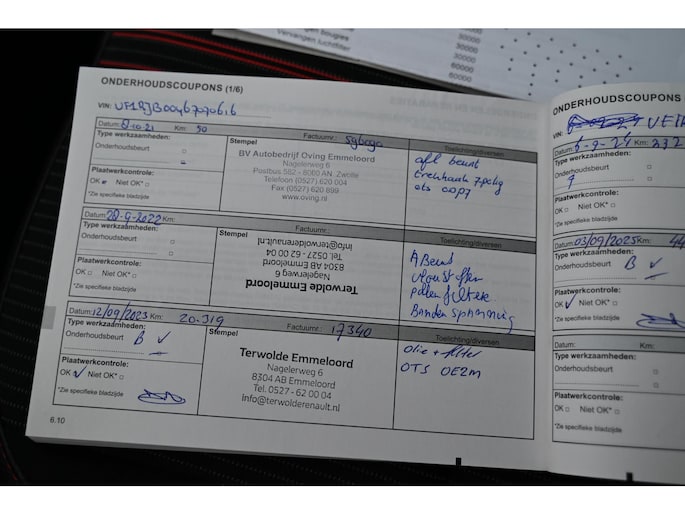 Vervangen luchtfilter
30000
30000
30000
60000
60000
ONDERHOUDSCOUPONS (1/6)
VIN:
Datum: 8-10-21 Km: 50 Factuurnr.:
Type werkzaamheden:
Onderhoudsbeurt
Plaatwerkcontrole:
OK Niet OK*
*Zie specifieke bladzijde
Stempel
BV Autobedrijf Oving Emmeloord
Nagelerweg 6
Postbus 582 - 8000 AN Zwolle
Telefoon (0527) 620 004
Fax (0527) 620 899
www.oving.nl
Toelichting/diversen
afl beurt
Datum: 28-9-2022 Km:
Type werkzaamheden:
Onderhoudsbeurt
Plaatwerkcontrole:
OK Niet OK*
*Zie specifieke bladzijde
Stempel
Terwolde Emmeloord
Nagelerweg 6
8304 AB Emmeloord
Tel. 0527 - 62 00 04
info@terwolderenault.nl
Toelichting/diversen
A Beurt
pollen filter
Banden spanning
Datum: 12/09/2023 Km: 20-319 Factuurnr.: 17340
Type werkzaamheden:
Onderhoudsbeurt B
Plaatwerkcontrole:
OK Niet OK*
*Zie specifieke bladzijde
Stempel
Terwolde Emmeloord
Nagelerweg 6
8304 AB Emmeloord
Tel. 0527 - 62 00 04
info@terwolderenault.nl
Toelichting/diversen
Olie + filter
OTS OE2M
6.10
ONDERHOUDSCOUPONS
VIN:
Datum: 5-9-24 Km: 232
Type werkzaamheden:
Onderhoudsbeurt
Plaatwerkcontrole:
OK Niet OK*
*Zie specifieke bladzijde
Datum: 03/09/2025 Km: 44
Type werkzaamheden:
Onderhoudsbeurt B
Plaatwerkcontrole:
OK Niet OK*
*Zie specifieke bladzijde
Datum: Km:
Type werkzaamheden:
Onderhoudsbeurt
Plaatwerkcontrole:
OK Niet OK*
*Zie specifieke bladzijde